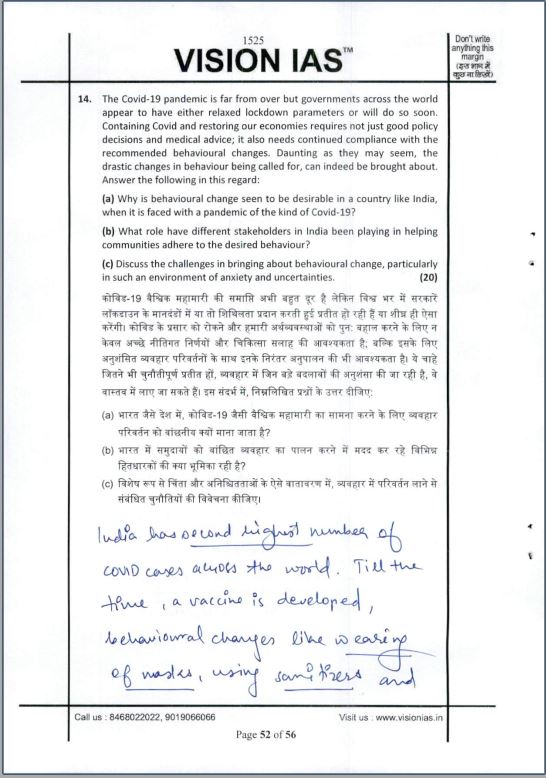 1525
VISION IAS™
Don't write
anything this
margin
(इस भाग में
कुछ ना लिखें)
14. The Covid-19 pandemic is far from over but governments across the world
appear to have either relaxed lockdown parameters or will do so soon.
Containing Covid and restoring our economies requires not just good policy
decisions and medical advice; it also needs continued compliance with the
recommended behavioural changes. Daunting as they may seem, the
drastic changes in behaviour being called for, can indeed be brought about.
Answer the following in this regard:
(a) Why is behavioural change seen to be desirable in a country like India,
when it is faced with a pandemic of the kind of Covid-19?
(b) What role have different stakeholders in India been playing in helping
communities adhere to the desired behaviour?
(c) Discuss the challenges in bringing about behavioural change, particularly
in such an environment of anxiety and uncertainties. (20)
कोविड-19 वैश्विक महामारी की समाप्ति अभी बहुत दूर है लेकिन विश्व भर में सरकारें
लॉकडाउन के मानदंडों में या तो शिथिलता प्रदान करती हुई प्रतीत हो रही हैं या शीघ्र ही ऐसा
करेंगी। कोविड के प्रसार को रोकने और हमारी अर्थव्यवस्थाओं को पुन: बहाल करने के लिए न
केवल अच्छे नीतिगत निर्णयों और चिकित्सा सलाह की आवश्यकता है; बल्कि इसके लिए
अनुशंसित व्यवहार परिवर्तनों के साथ इनके निरंतर अनुपालन की भी आवश्यकता है। ये चाहे
जितने भी चुनौतीपूर्ण प्रतीत हों, व्यवहार में जिन बड़े बदलावों की अनुशंसा की जा रही है, वे
वास्तव में लाए जा सकते हैं। इस संदर्भ में, निम्नलिखित प्रश्नों के उत्तर दीजिए:
(a) भारत जैसे देश में, कोविड-19 जैसी वैश्विक महामारी का सामना करने के लिए व्यवहार
परिवर्तन को वांछनीय क्यों माना जाता है?
(b) भारत में समुदायों को वांछित व्यवहार का पालन करने में मदद कर रहे विभिन्न
हितधारकों की क्या भूमिका रही है?
(c) विशेष रूप से चिंता और अनिश्चितताओं के ऐसे वातावरण में, व्यवहार में परिवर्तन लाने से
संबंधित चुनौतियों की विवेचना कीजिए।
India has second highest number of
COVID cases across the world. Till the
time, a vaccine is developed,
behavioural changes like wearing
of masks, using sanitizers and
Call us : 8468022022, 9019066066
Visit us : www.visionias.in
Page 52 of 56